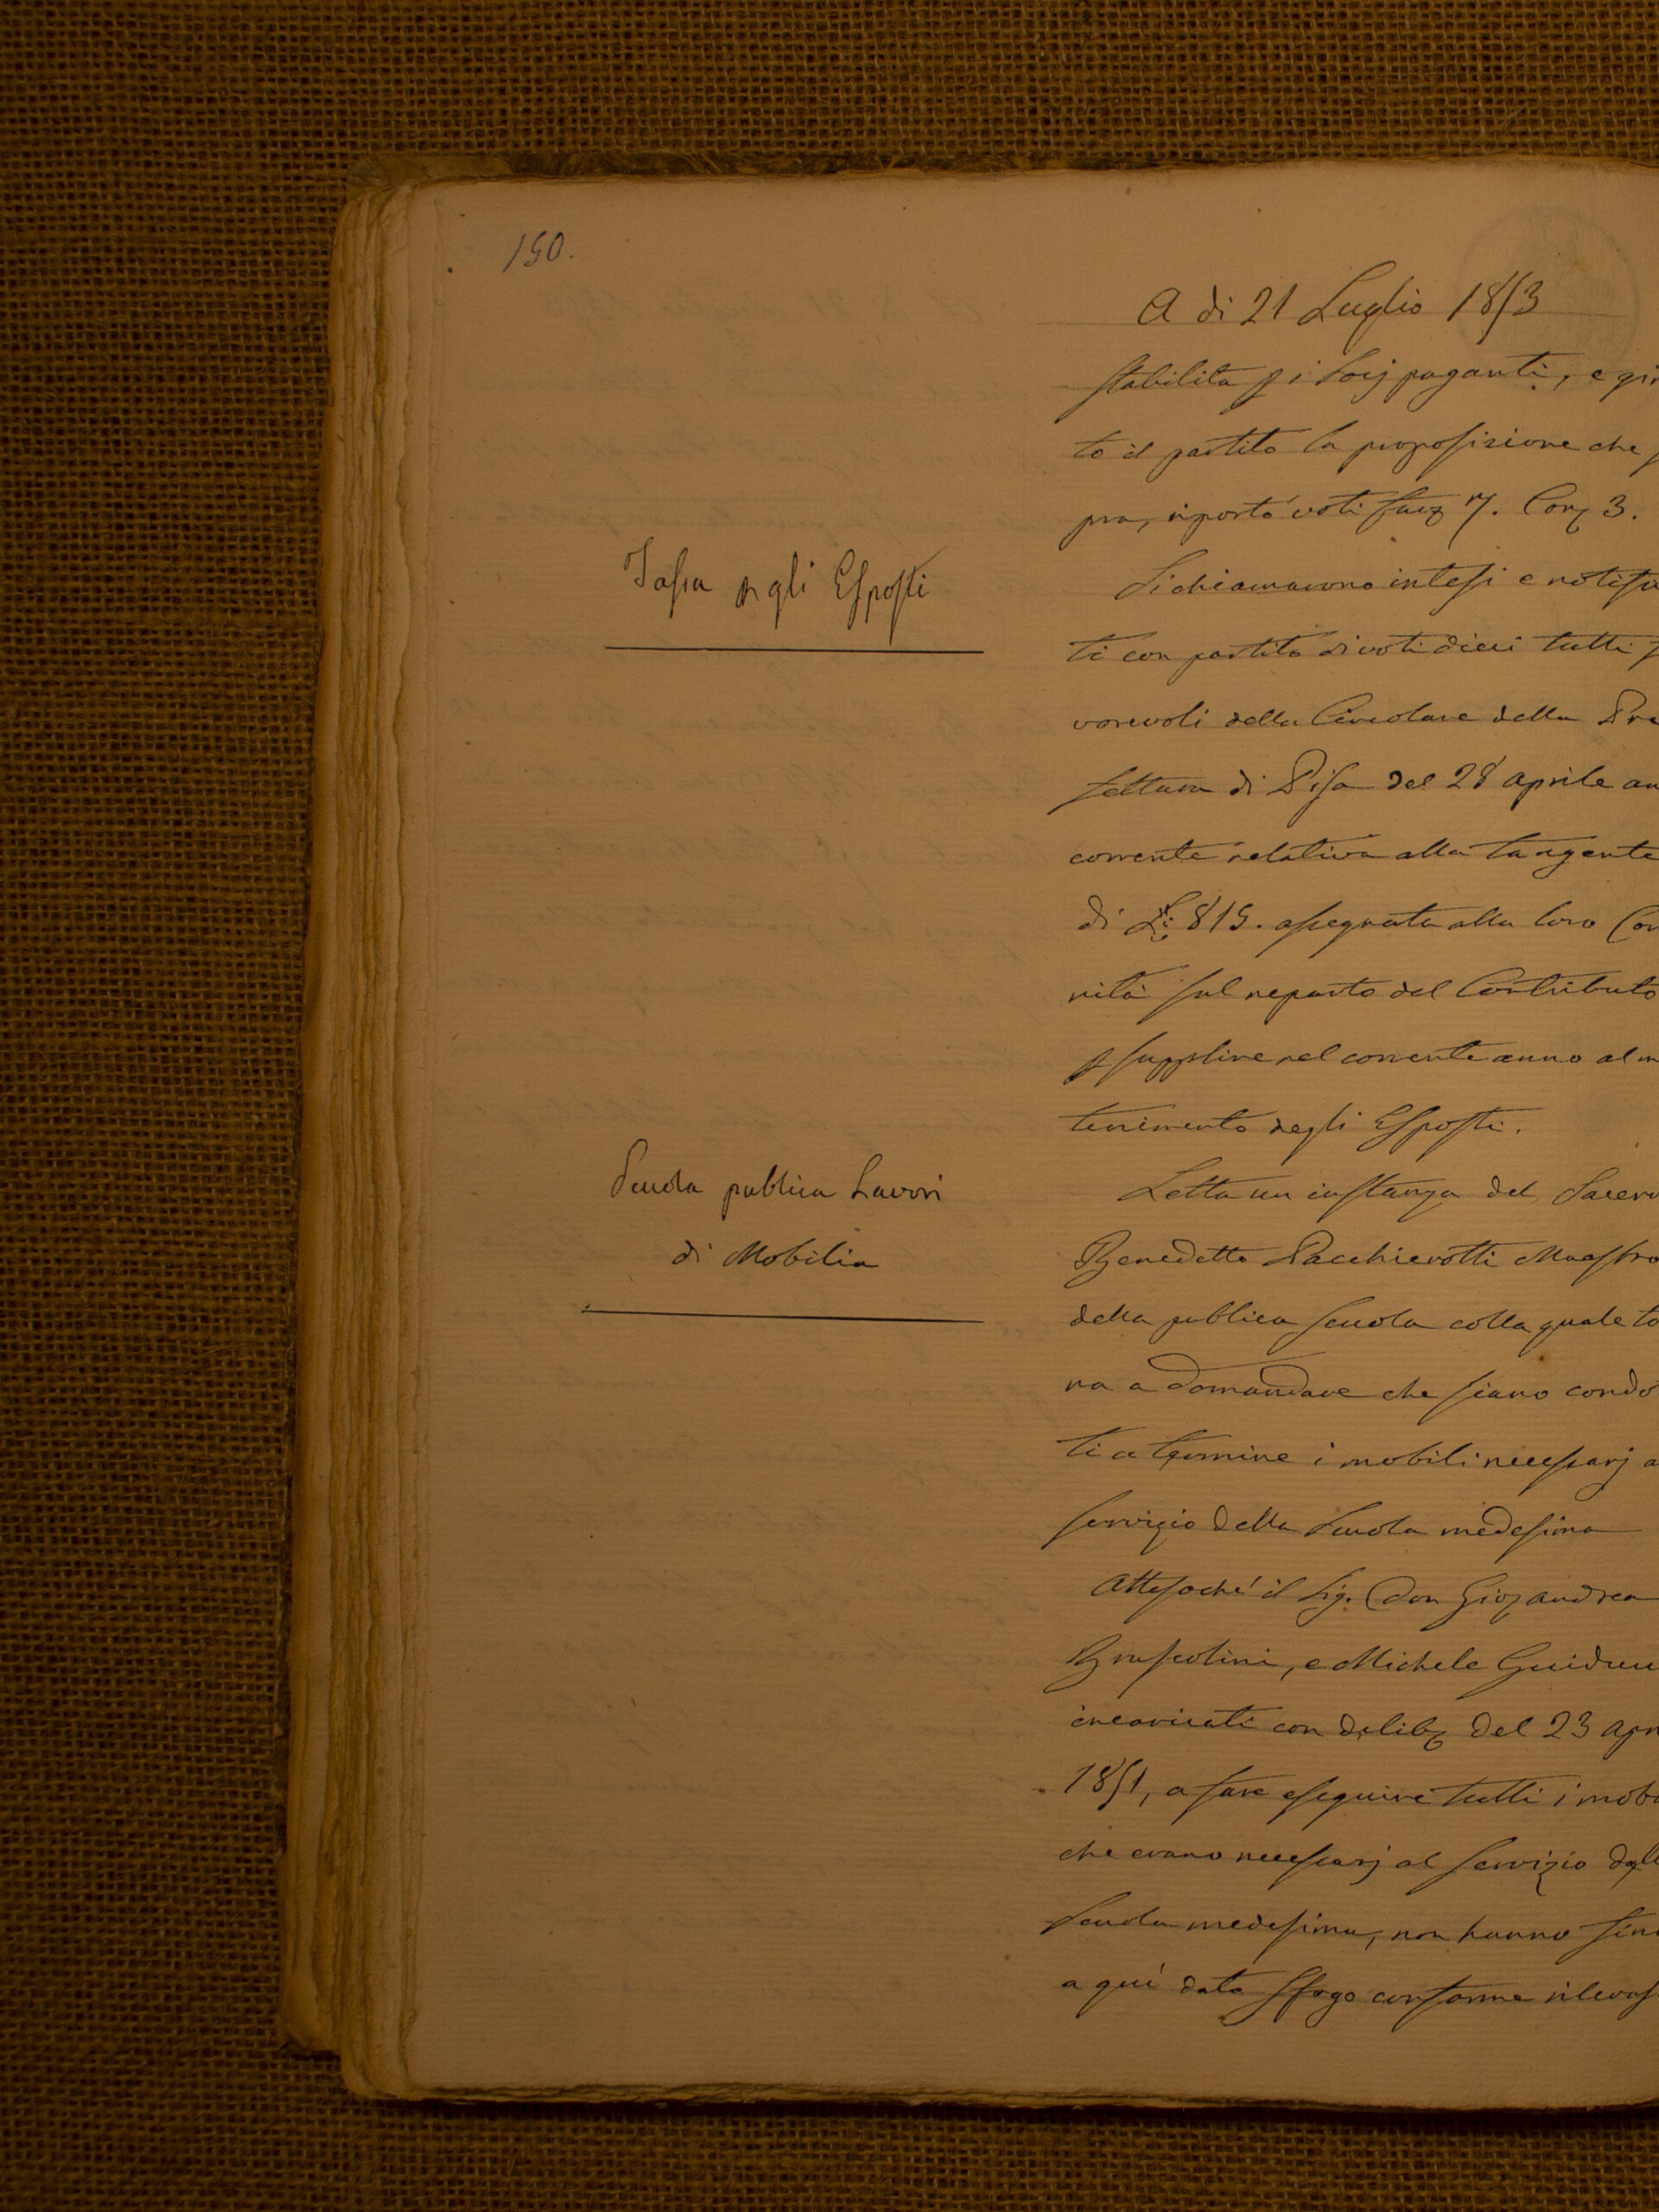 150.
A di 21 Luglio 1853
stabilita p i Socj paganti, e gir
to il partito la proposizione che
pra, riportò voti favz 7. Conz 3.
Tassa p gli Esposti
Si chiamarono intesi e notifica
ti con partito di voti dieci tutti
vorevoli della Circolare della Pre
fettura di Pisa del 28 Aprile an
corrente relativa alla tangente
di 815. assegnata alla loro Com
nità sul reparto del Contributo
p supplire nel corrente anno al m
tenimento degli Esposti.
Scuola publica Lavori
di Mobilia
Letta un instanza del Sacerd
Benedetto Pacchierotti Maestro
della publica scuola colla quale to
na a domandare che siano condot
ti a termine i mobili necessarj a
servizio della Scuola medesima
Attesoché il Sig. Don Gioz Andrea
Bruscolini, e Michele Guiducc
incaricati con delibz del 23 Apr
1851, a fare eseguire tutti i mobi
che erano necessarj al servizio dell
Scuola medesima, non hanno sin
a qui dato sfogo conforme rilevas